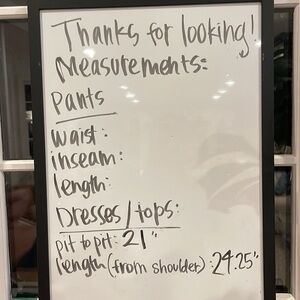 Thanks for looking!
Measurements:
Pants
Waist:
inseam:
length:
Dresses/tops:
pit to pit: 21"
length (from shoulder): 24.25"